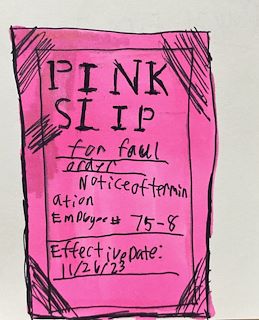 PINK
SLIP
for faul
order
Noticeoftermin
ation
EmPloyee# 75-8
EffectiveDate:
11/26/23